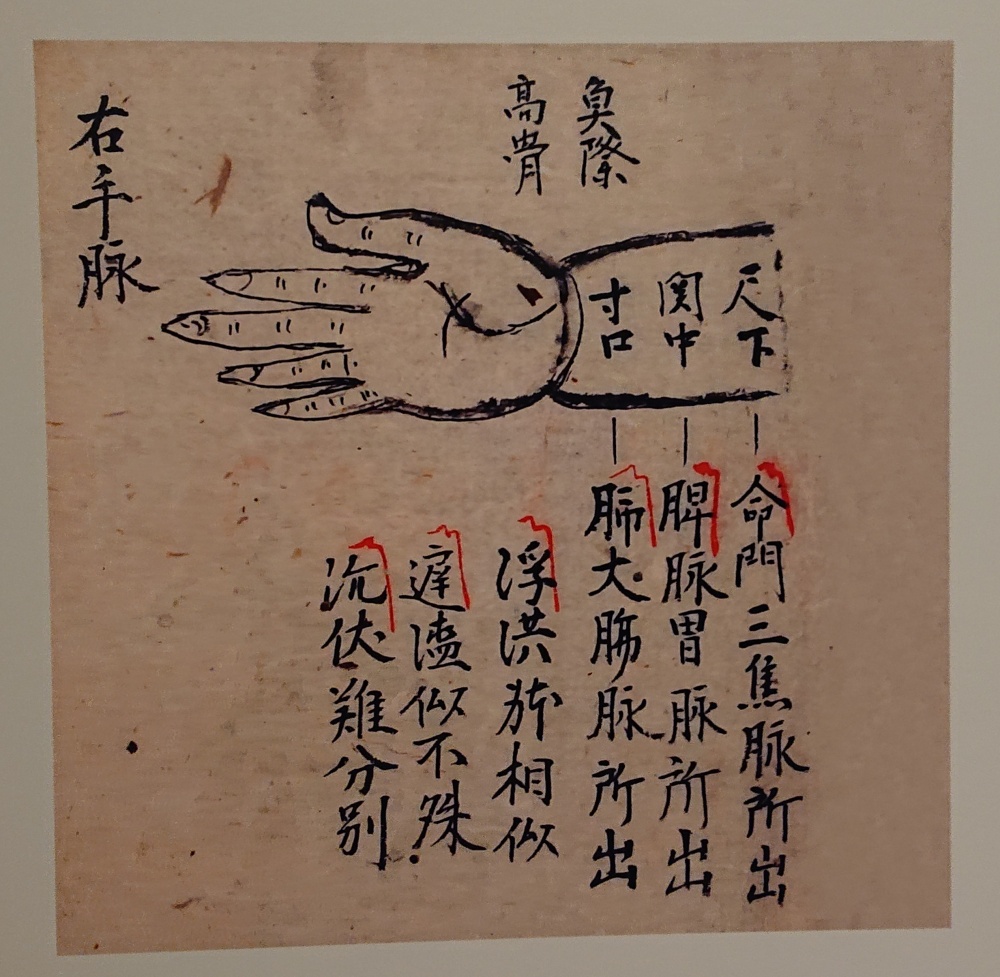 魚際
高骨
尺下
関中
寸口
命門三焦脉所出
脾脉胃脉所出
肺大腸脉所出
浮洪相似
遲濇似不殊
沉伏難分別
右手脉